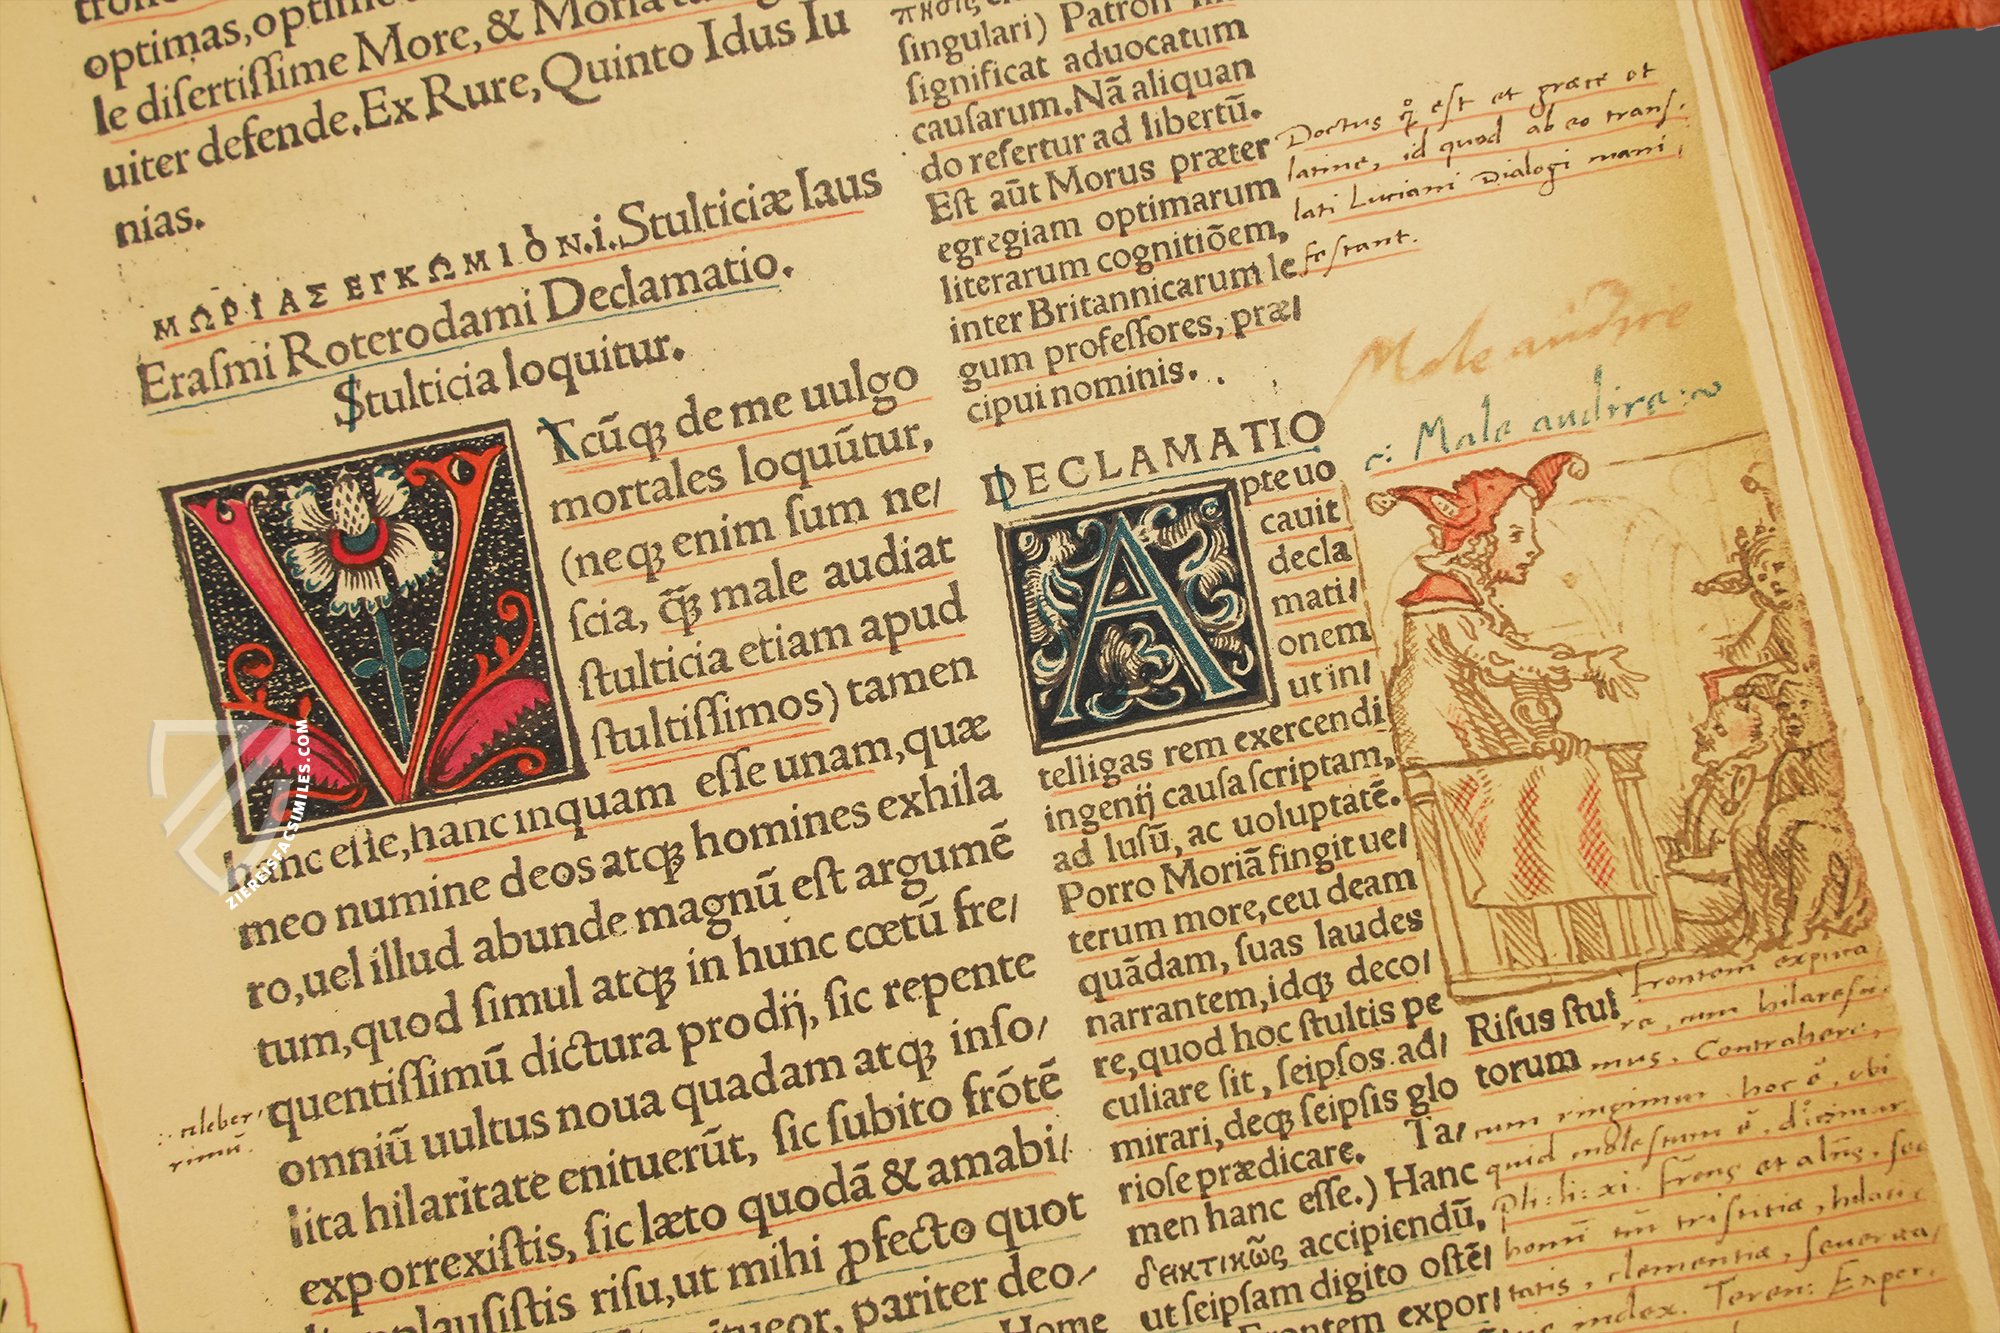 optimas,
le disertissime More, & Moria
uiter defende. Ex Rure, Quinto Idus Iu
nias.
ΜΩΡΙΑΣ ΕΓΚΩΜΙΟΝ.i. Stulticiæ laus
Erasmi Roterodami Declamatio.
Stulticia loquitur.
VTcūq; de me uulgo
mortales loquūtur,
(neq; enim sum ne/
scia, q̃; male audiat
stulticia etiam apud
stultissimos) tamen
hanc esse, hanc inquam esse unam, quæ
meo numine deos atq; homines exhila
ro, uel illud abunde magnū est argumē
tum, quod simul atq; in hunc cœtū fre/
quentissimū dictura prodij, sic repente
omniū uultus noua quadam atq; inso/
lita hilaritate enituerūt, sic subito frōtē
exporrexistis, sic læto quodā & amabi/
risu, ut mihi ꝓfecto quot
pariter deo/
:celeber/
rimū.
singulari) Patron
significat aduocatum
causarum. Nā aliquan
do refertur ad libertū.
Est aūt Morus præter
egregiam optimarum
literarum cognitiōem,
inter Britannicarum le
gum professores, præ/
cipui nominis.
Doctus est et græce et
latine, id quod ab eo trans/
lati Luciani Dialogi mani/
festant.
Male audire
c: Male audire:~
DECLAMATIO
Apte uo
cauit
decla
mati/
onem
ut in/
telligas rem exercendi
ingenij causa scriptam,
ad lusū, ac uoluptatē.
Porro Moriā fingit ue/
terum more, ceu deam
quādam, suas laudes
narrantem, idq; deco/
re, quod hoc stultis pe
culiare sit, seipsos ad/
mirari, deq; seipsis glo
riose prædicare. Ta/
men hanc esse.) Hanc
δεικτικῶς accipiendū,
ut seipsam digito ostē/
Frontem expor/
Risus stul
torum
Frontem
re, cum hilaresci
mus. Contrahere,
cum ringimur hoc ē, ubi
quid molestum ē,
Pli: li: xi. Frons et alijs,
tristitiæ,
tatis, clementiæ, seuerita/
index. Teren: Exper.
ZIEREISFACSIMILES.COM